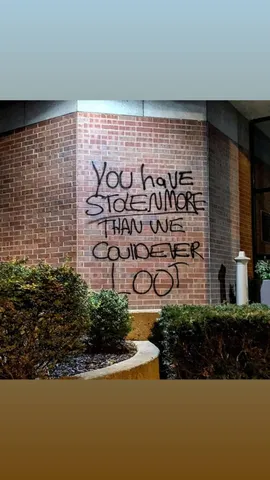 YOU have
STOLEN MORE
THAN WE
COULD EVER
LOOT